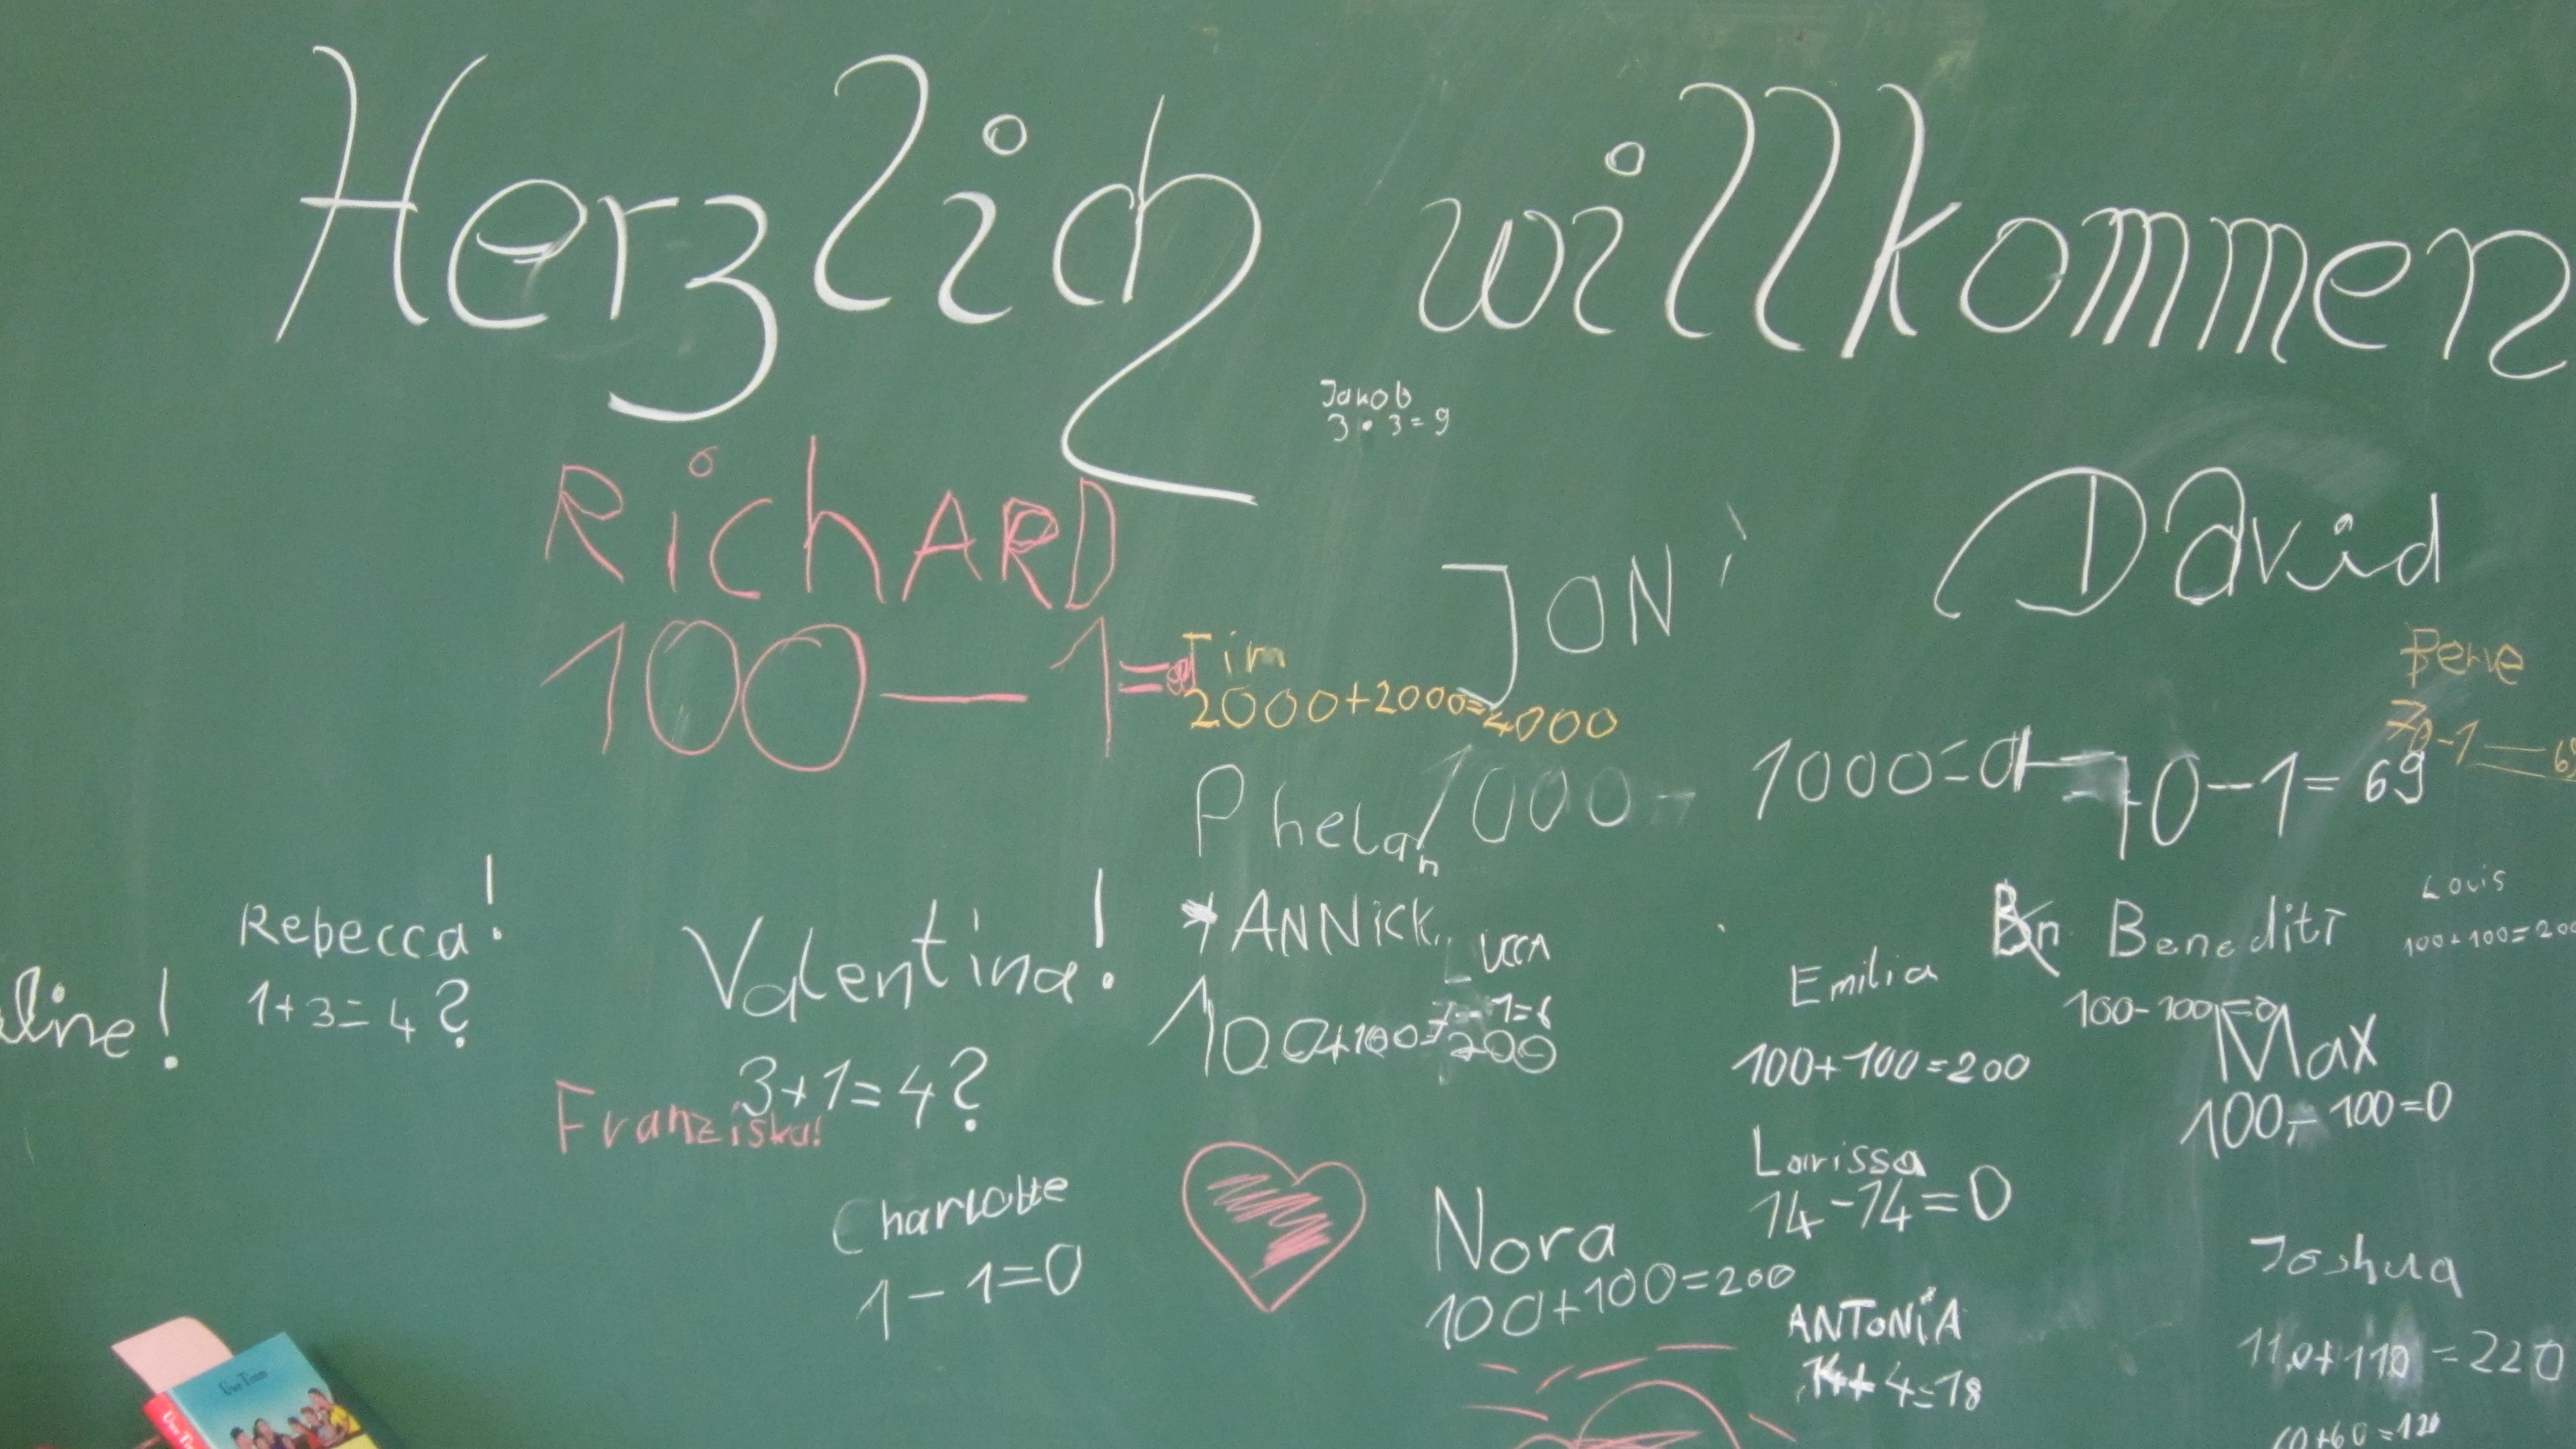 Herzlich willkommen
Jakob
3 · 3 = 9
RichARD
100 - 1 =
Tim
2000+2000=4000
JONi
1000 - 1000=0
DAvid
70-1= 69
Bene
70-1
Phelan
ANNiCK
100+100=200
LUCCA
7-1=6
Rebecca!
1+3=4?
Valentina!
3+1=4?
Franziska!
Charlotte
1-1=0
Emilia
100+100=200
Bn Beneditt
100-100=0
Louis
100+100=200
Max
100-100=0
Larissa
14-14=0
Nora
100+100=200
ANTONiA
14+4=18
Joshua
110+110=220
60+60=120
Uwe Timm